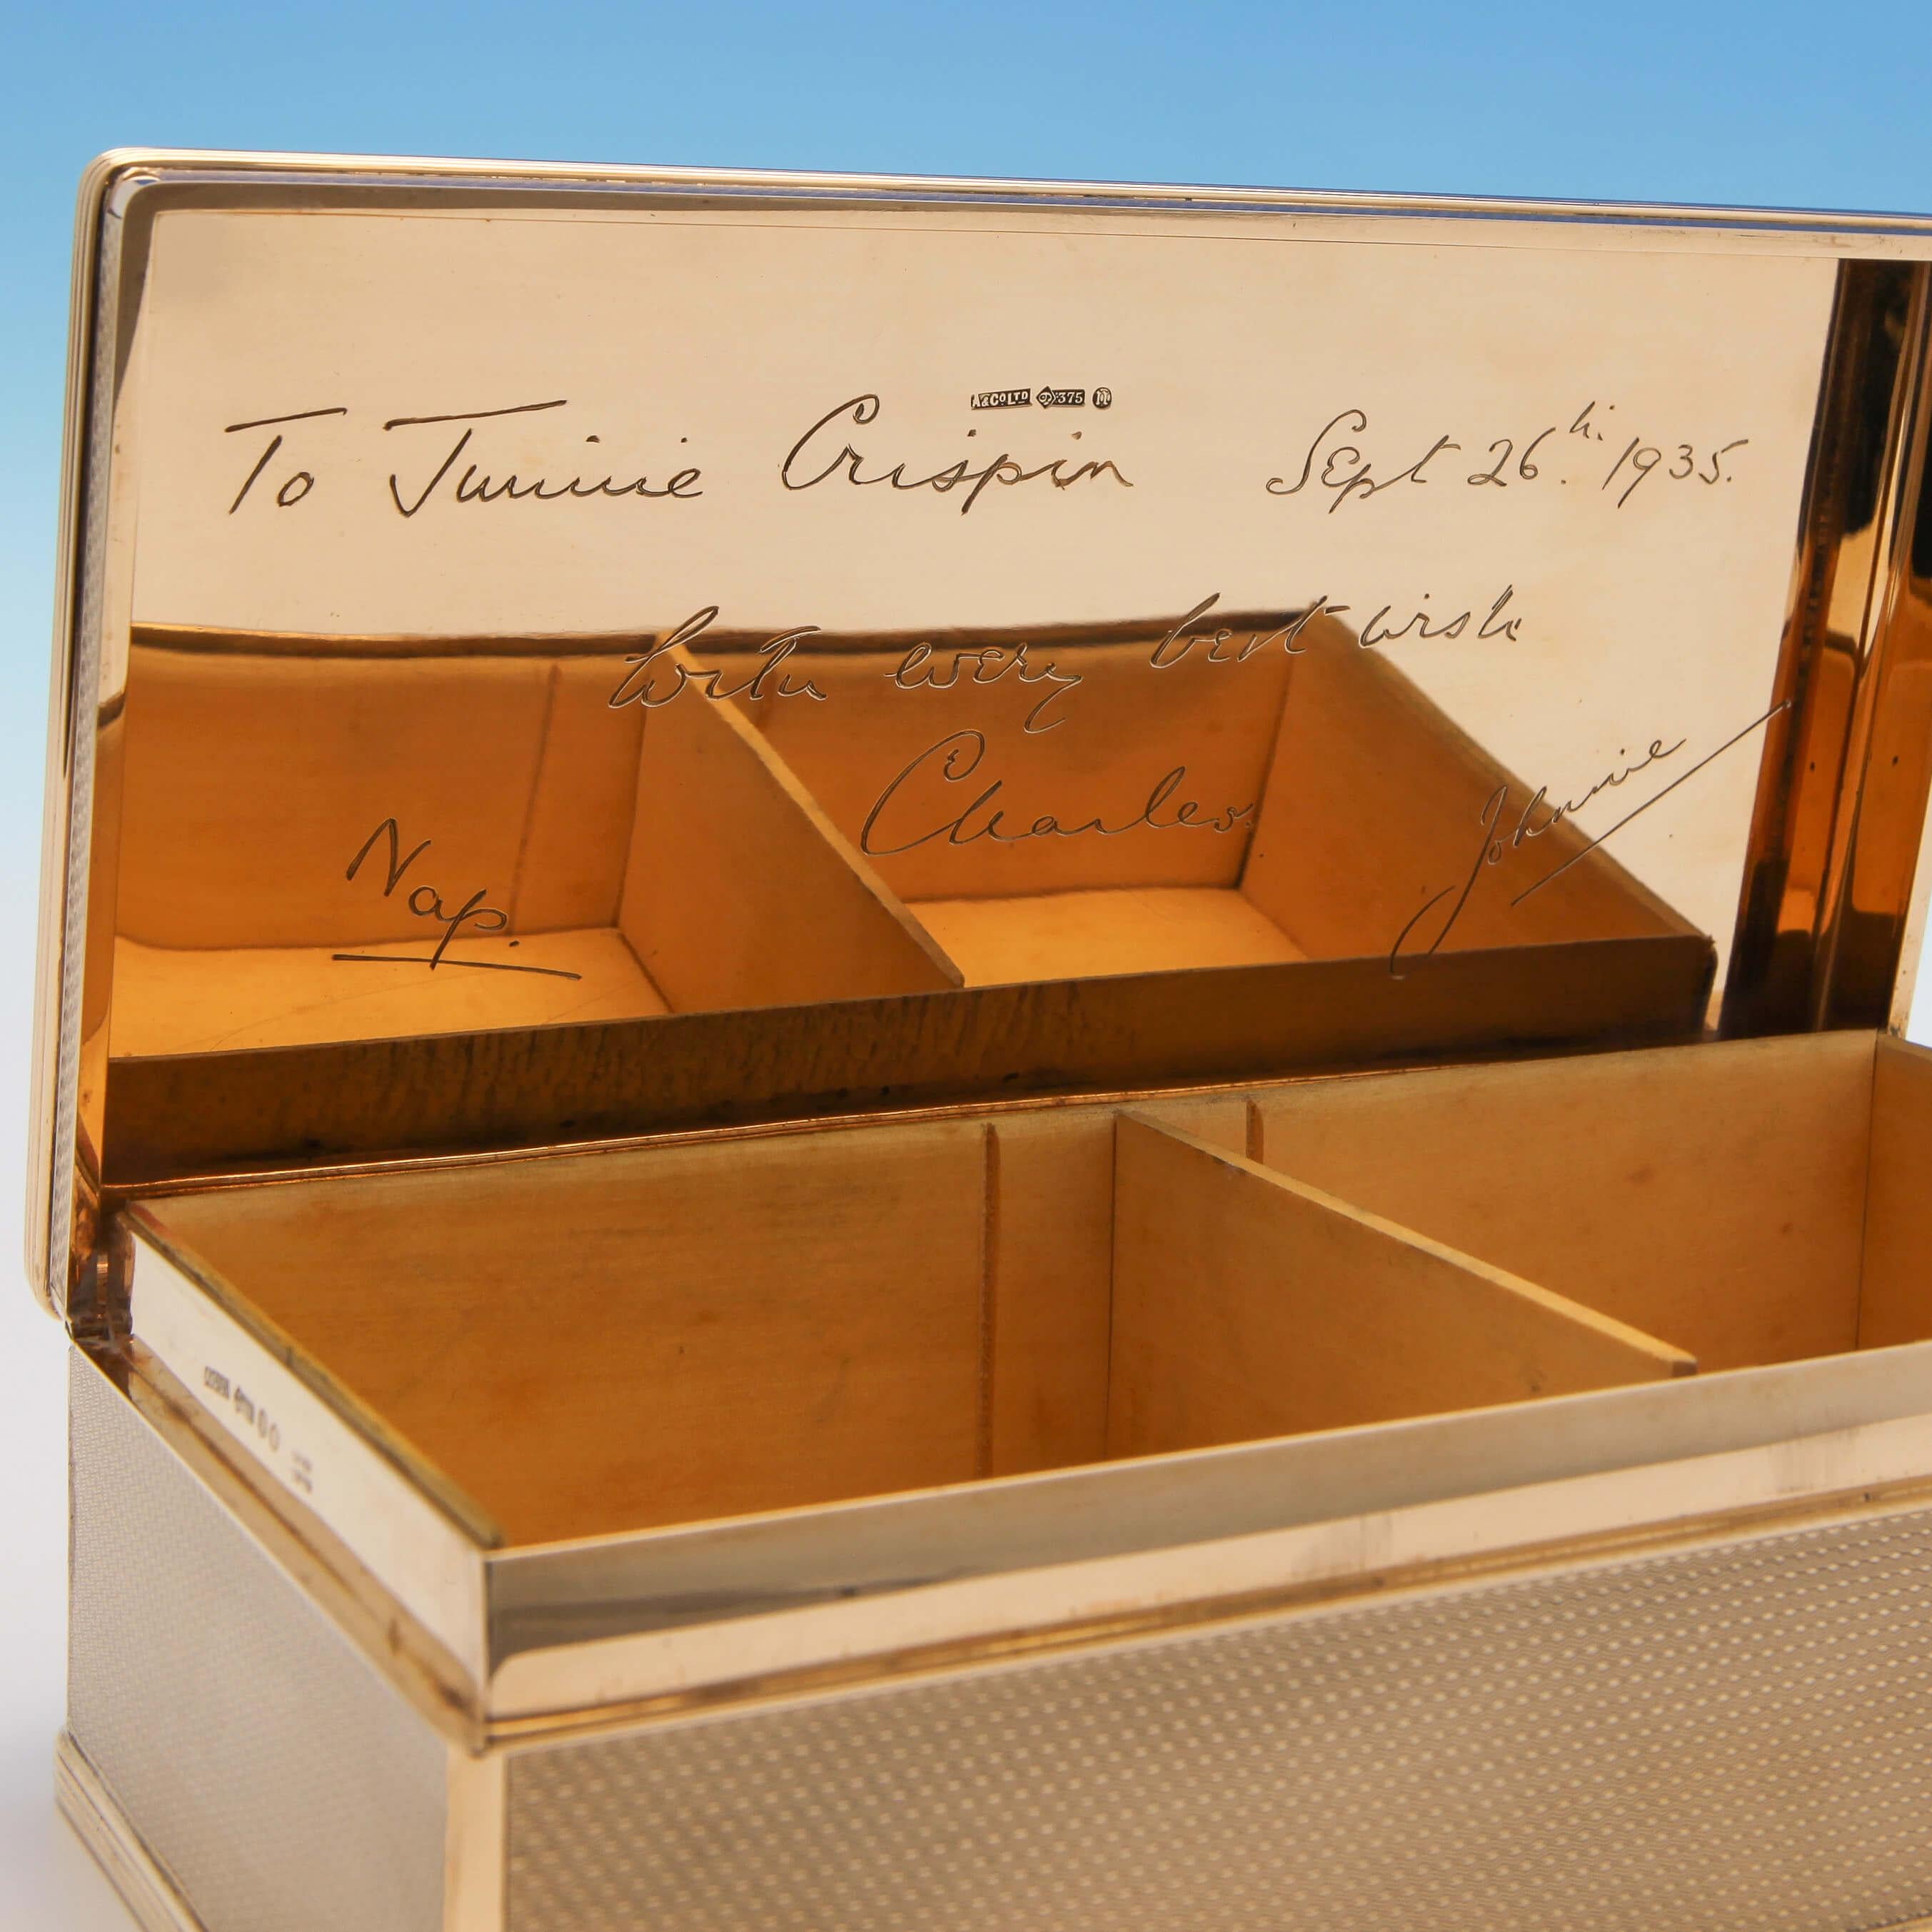 A&CO LTD 9 .375
To Jimmie Crispin Sept 26th. 1935.
With every best wish
Charles.
Johnnie
Nap.